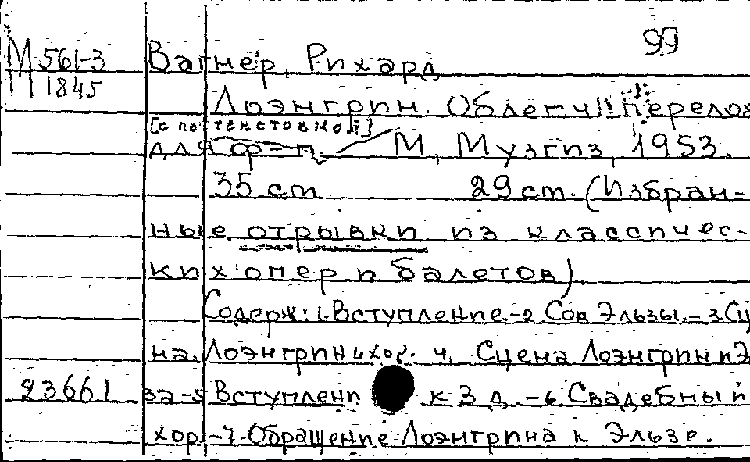 99
М 561-3 Вагнер, Рихард
1845
Лоэнгрин. Облегч. перелож
[с подтекстовкой]
для ф-п. М., Музгиз, 1953.
35 ст 29 cm. (Избран-
ные отрывки из классичес-
ких опер и балетов)
Содерж: 1. Вступление -2. Сон Эльзы. -3. Сц
на. Лоэнгрин и хор. 4. Сцена Лоэнгрин и Э
23661 за -5 Вступлени к 3 д. -6. Свадебный
хор -7. Обращение Лоэнгрина к Эльзе.